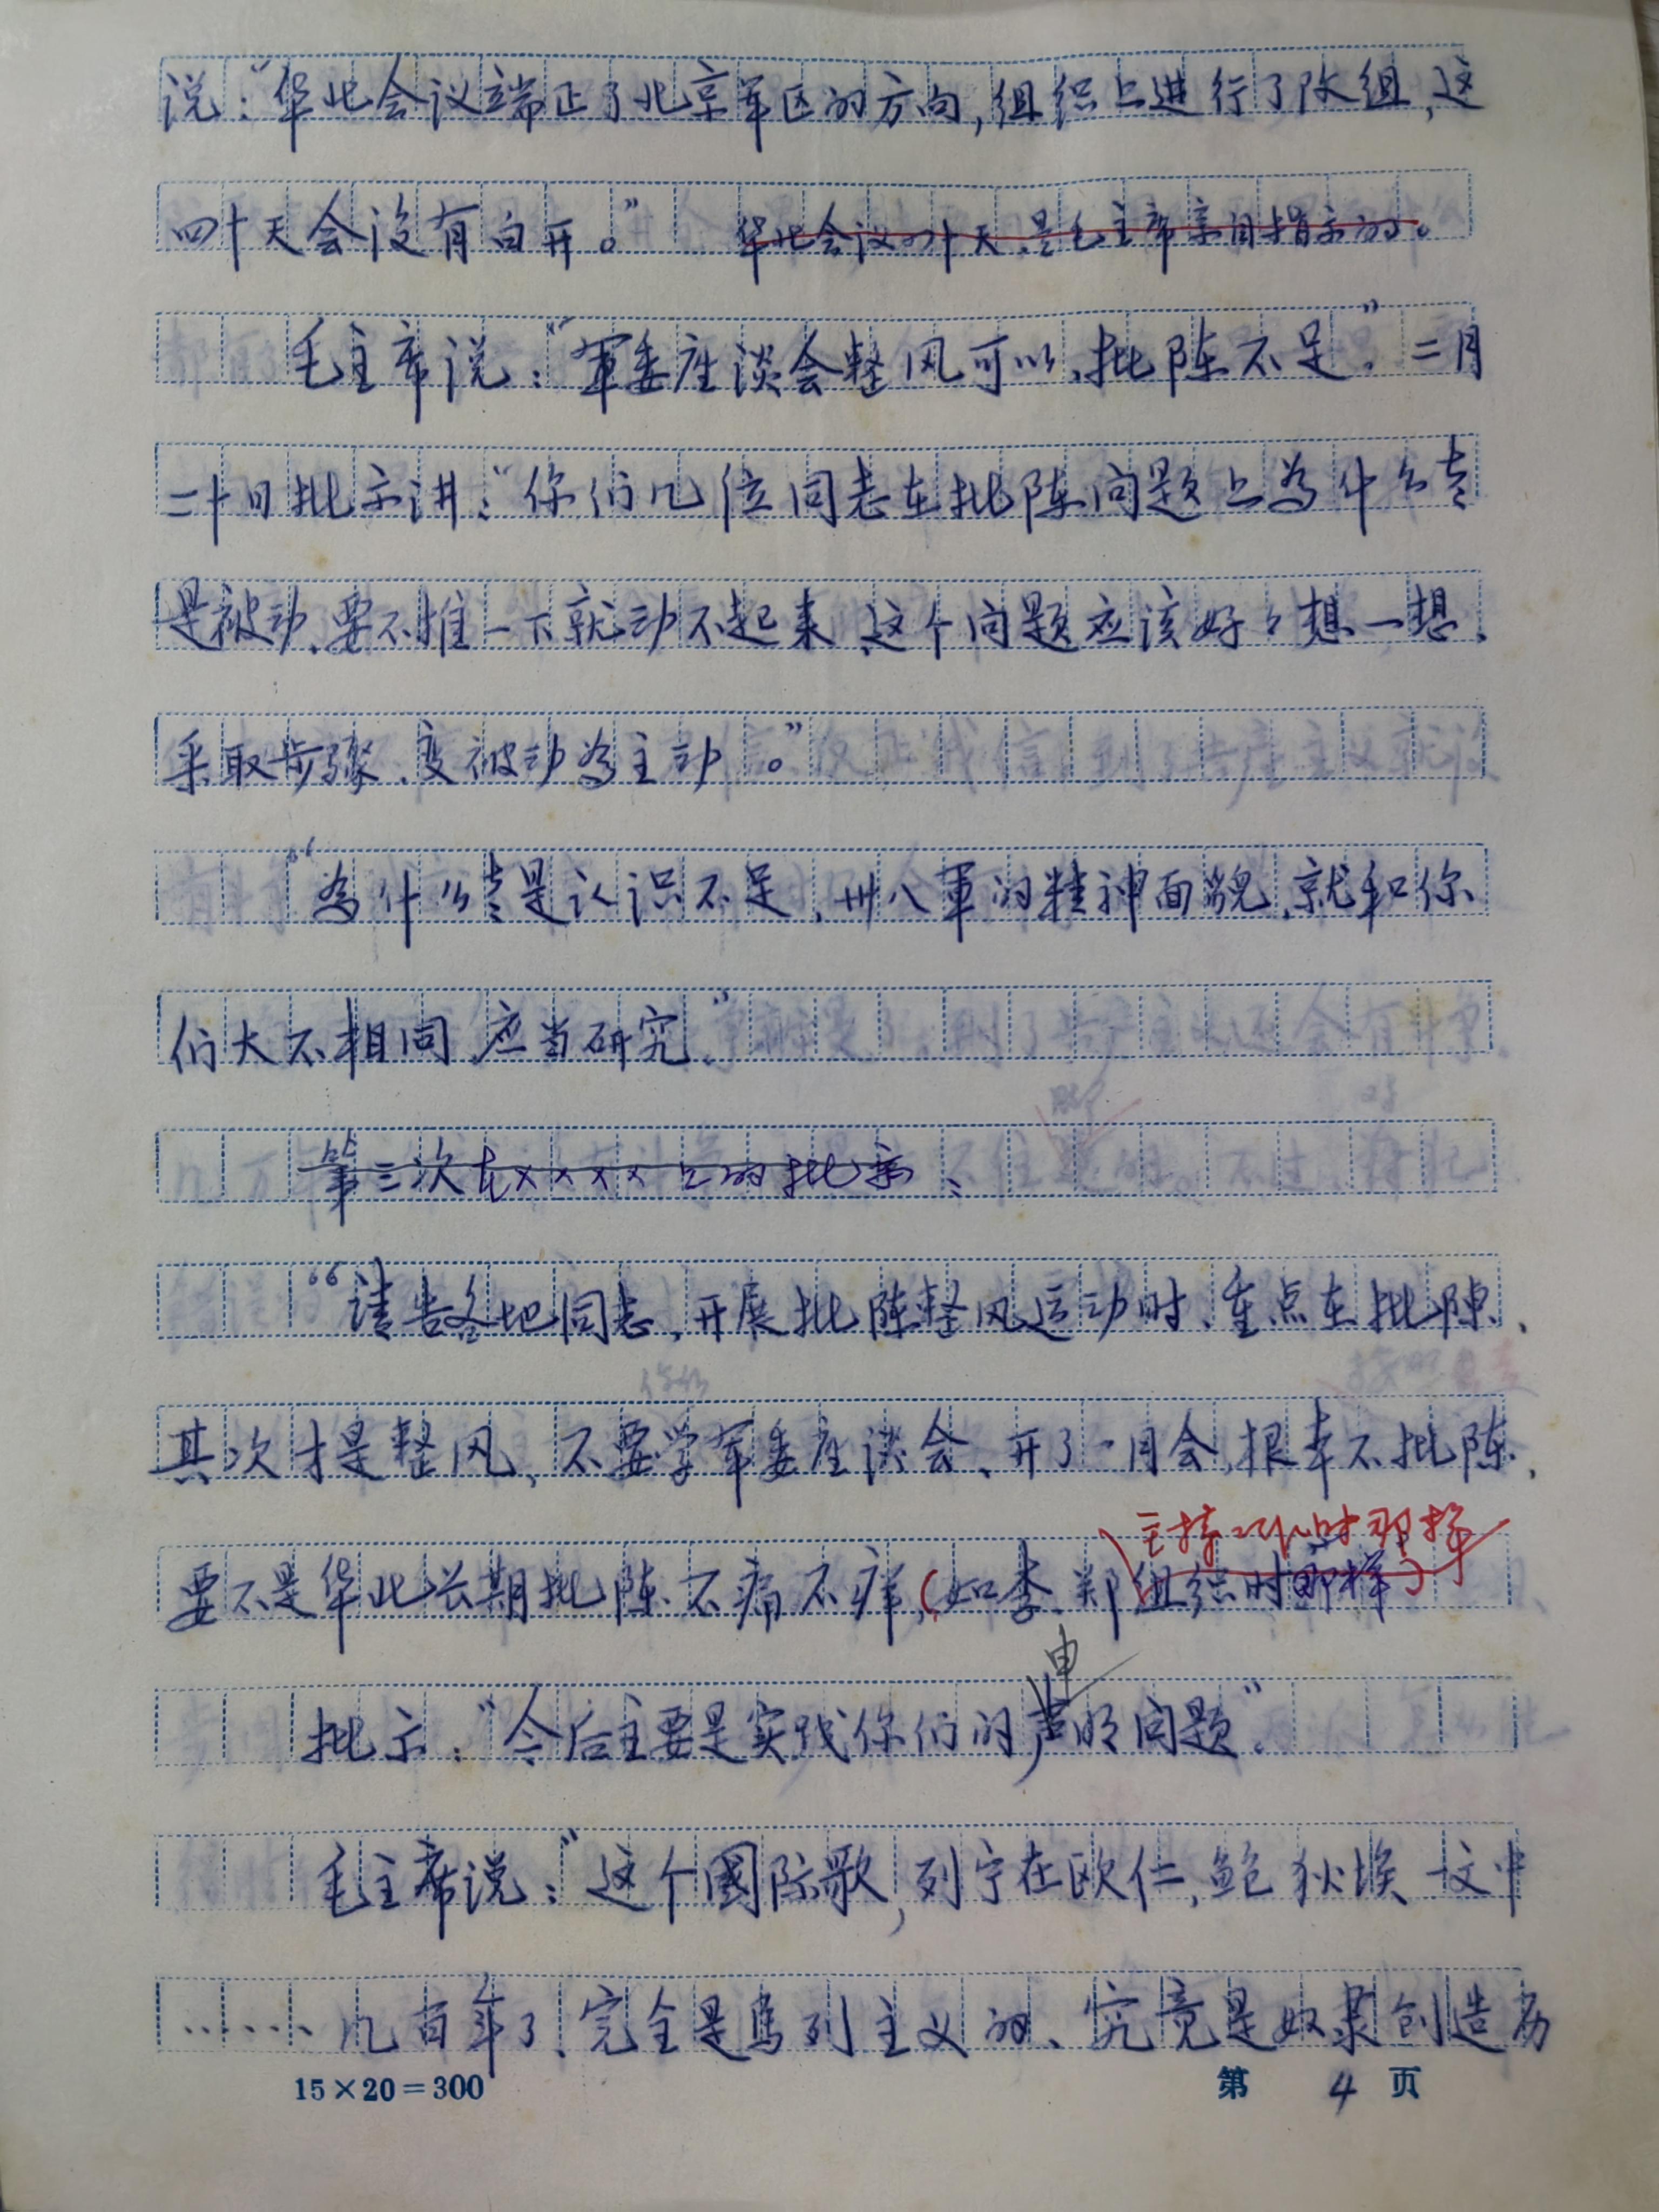 说：“华北会议端正了北京军区的方向，组织上进行了改组，这
四十天会没有白开。” 华北会议四十天，是毛主席亲自指示的。
毛主席说：“軍委座谈会整风可以，批陈不足。”二月
二十日批示讲：“你们几位同志在批陈问题上为什么老
是被动，要不推一下就动不起来，这个问题应该好々想一想，
采取步骤，变被动为主动。”
“为什么老是认识不足，卅八軍的精神面貌，就和你
们大不相同，应当研究。”
第三次在××××上的批示、
“请告各地同志，开展批陈整风运动时，重点在批陈，
其次才是整风，不要学军委座谈会，开了一月会，根本不批陈，
主持 时那样
要不是华北长期批陈不痛不痒，（如李、郑组织时那样）
申
批示：“今后主要是实践你们的声明问题。”
毛主席说：“这个國际歌，列宁在欧仁，鲍狄埃一文中
……几百年了，完全是馬列主义的、究竟是奴隶创造历
15×20=300 第 4 页